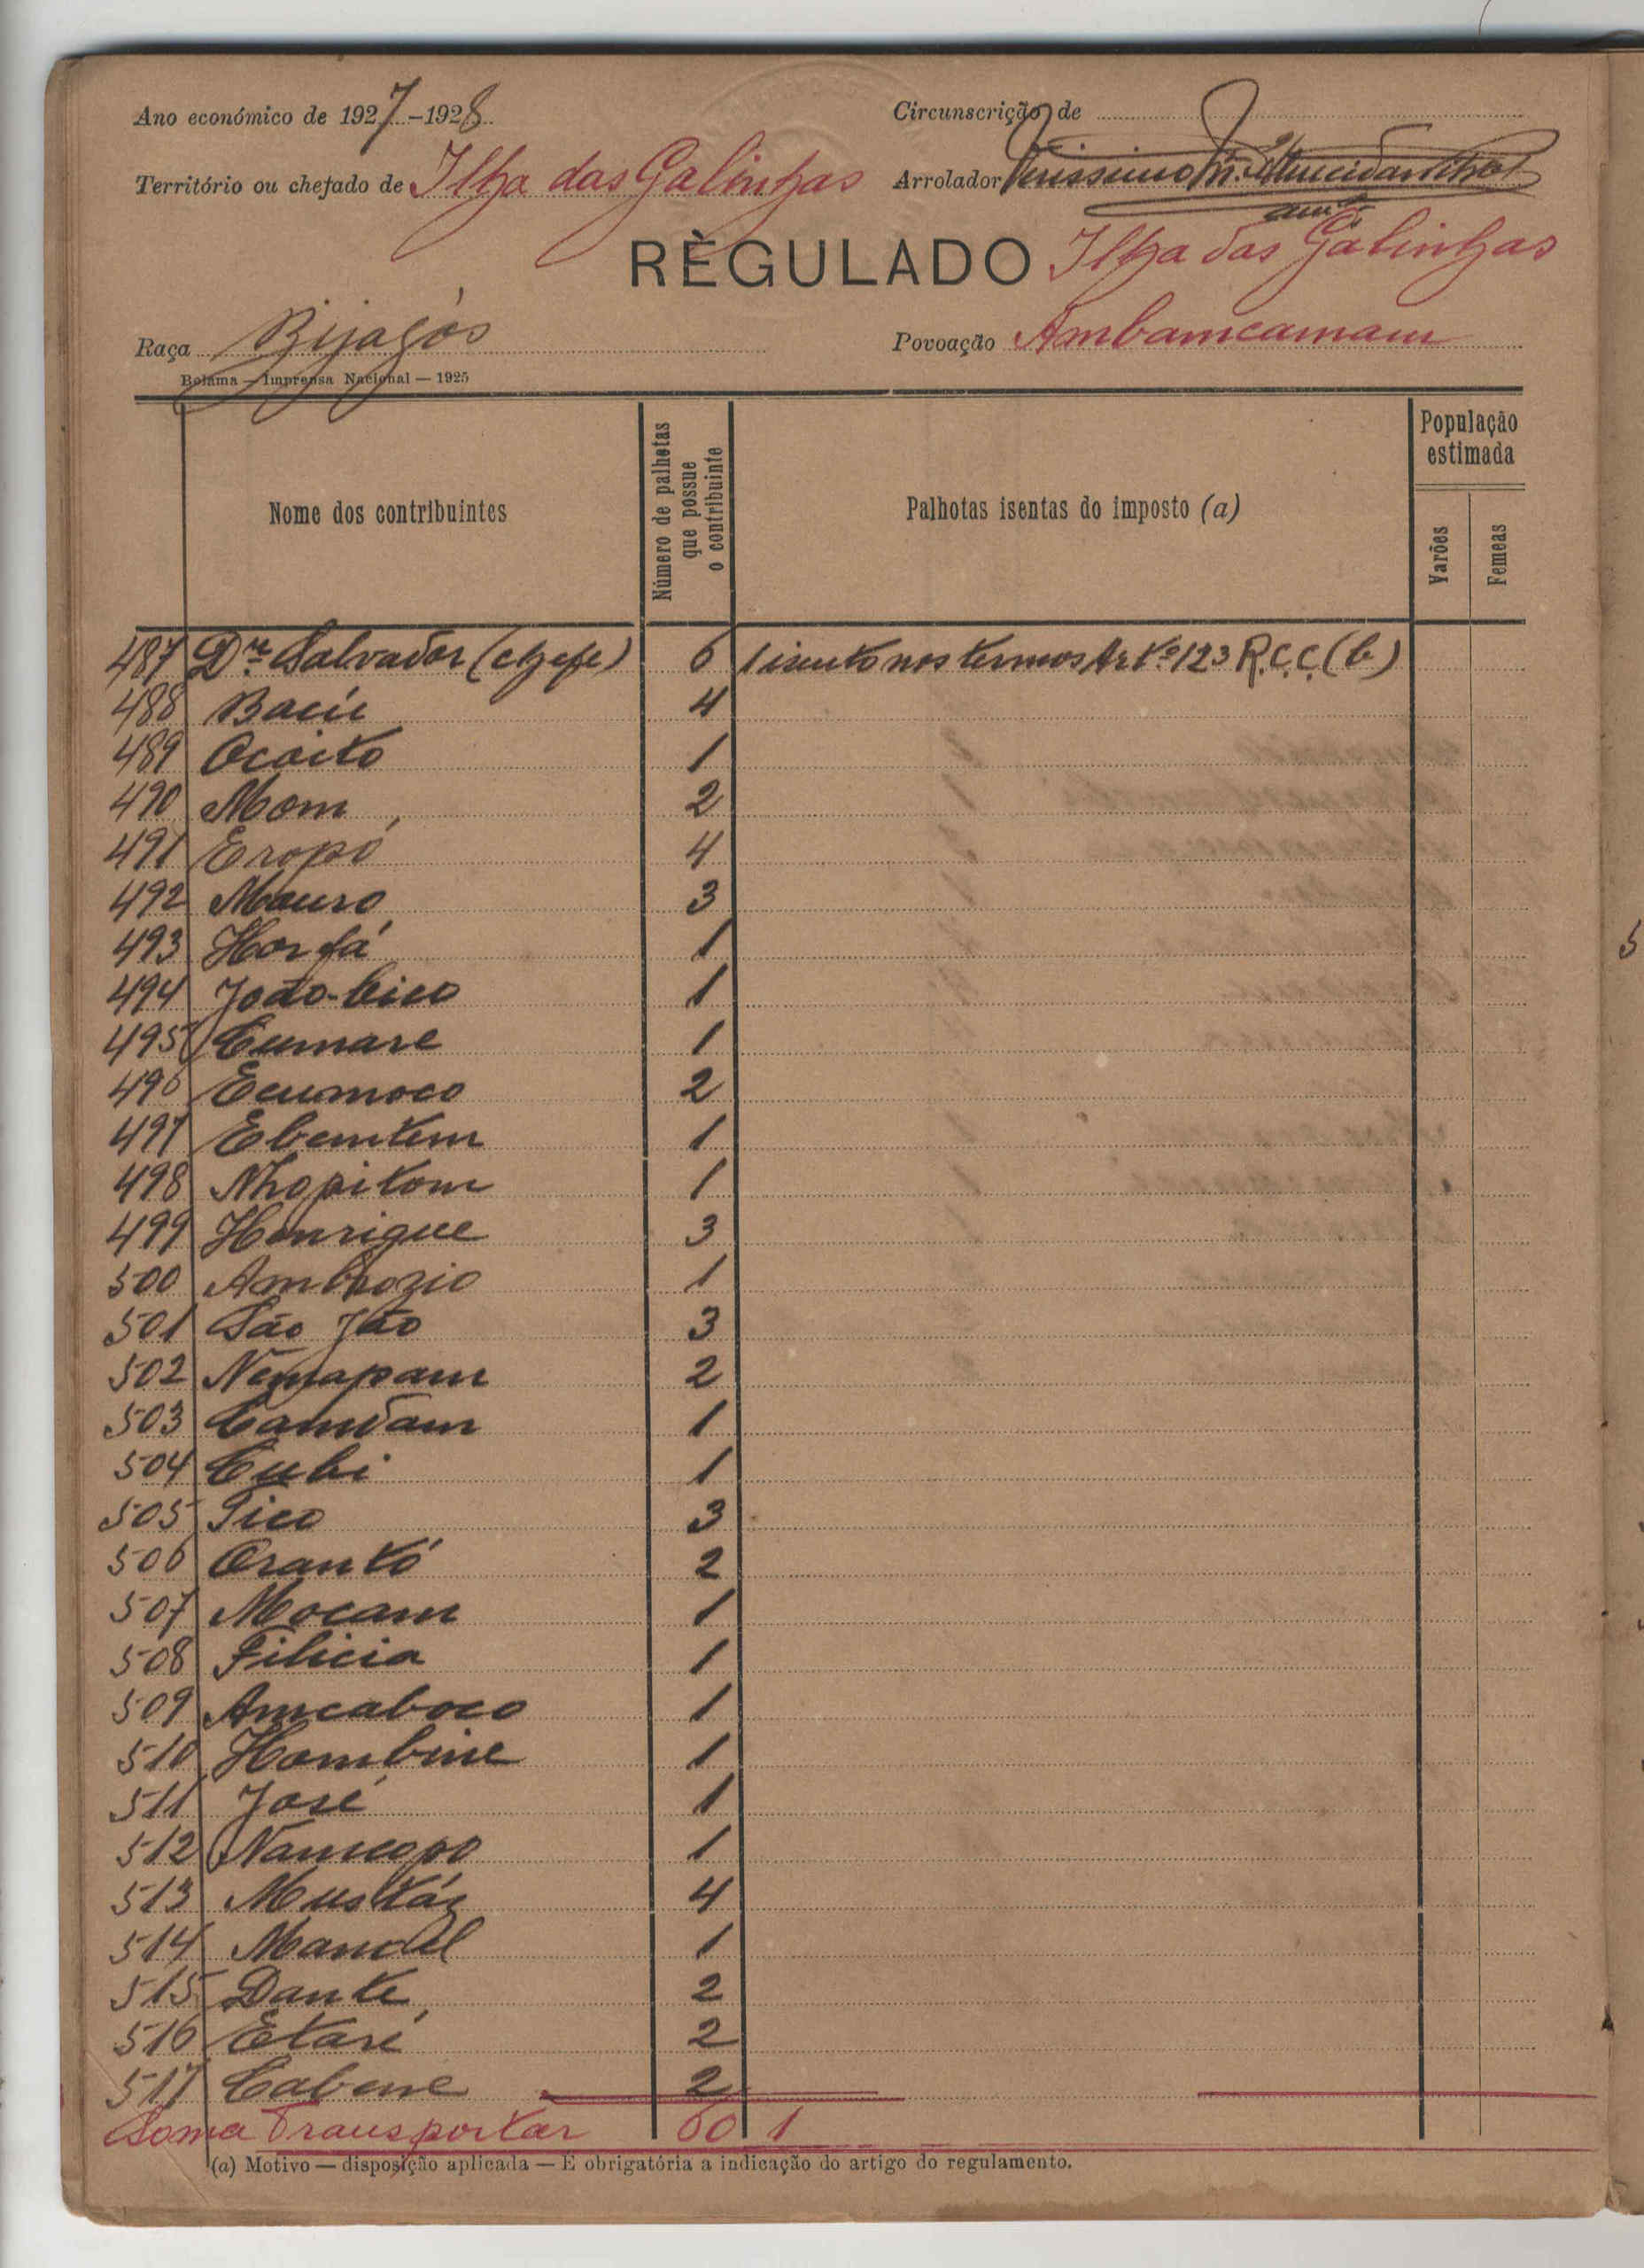 Ano económico de 1927-1928
Circunscrição de
Território ou chefado de Ilha das Galinhas
Arrolador Verissimo
RÈGULADO Ilha das Galinhas
Raça Bijagós
Povoação Ambamcamam
Bolama — Imprensa Nacional — 1925
Nome dos contribuintes
Número de palhotas que possue o contribuinte
Palhotas isentas do imposto (a)
População estimada
Varões
Femeas
487 Dr. Salvador (chefe) 6 1 isento nos termos Artº 123 R.C.C. (b)
488 Bacié 4
489 Ocoito 1
490 Mom 2
491 Eropó 4
492 Mauro 3
493 Horfá 1
494 João-bico 1
495 Cumare 1
496 Ecumoco 2
497 Ebemtem 1
498 Nhopitom 1
499 Henrique 3
500 Ambrozio 1
501 São Jão 3
502 Nemapam 2
503 Camdam 1
504 Cubi 1
505 Pico 3
506 Orantó 2
507 Mocam 1
508 Filicia 1
509 Amcaboco 1
510 Hombine 1
511 José 1
512 Namcopo 1
513 Mustáz 4
514 Manoel 1
515 Dante 2
516 Etaré 2
517 Cabene 2
Soma Transportar 60 1
(a) Motivo — disposição aplicada — E obrigatória a indicação do artigo do regulamento.